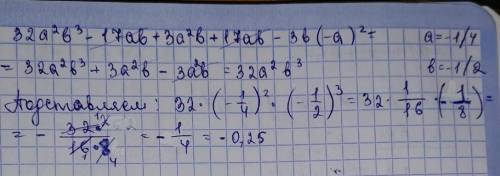 32a²b³ - 17ab + 3a²b + 17ab - 3b(-a)² = a = -1/4
= 32a²b³ + 3a²b - 3a²b = 32a²b³ b = -1/2
Подставляем: 32 · (-1/4)² · (-1/2)³ = 32 · 1/16 · (-1/8) =
= - 32/(16·8) = - 1/4 = - 0,25